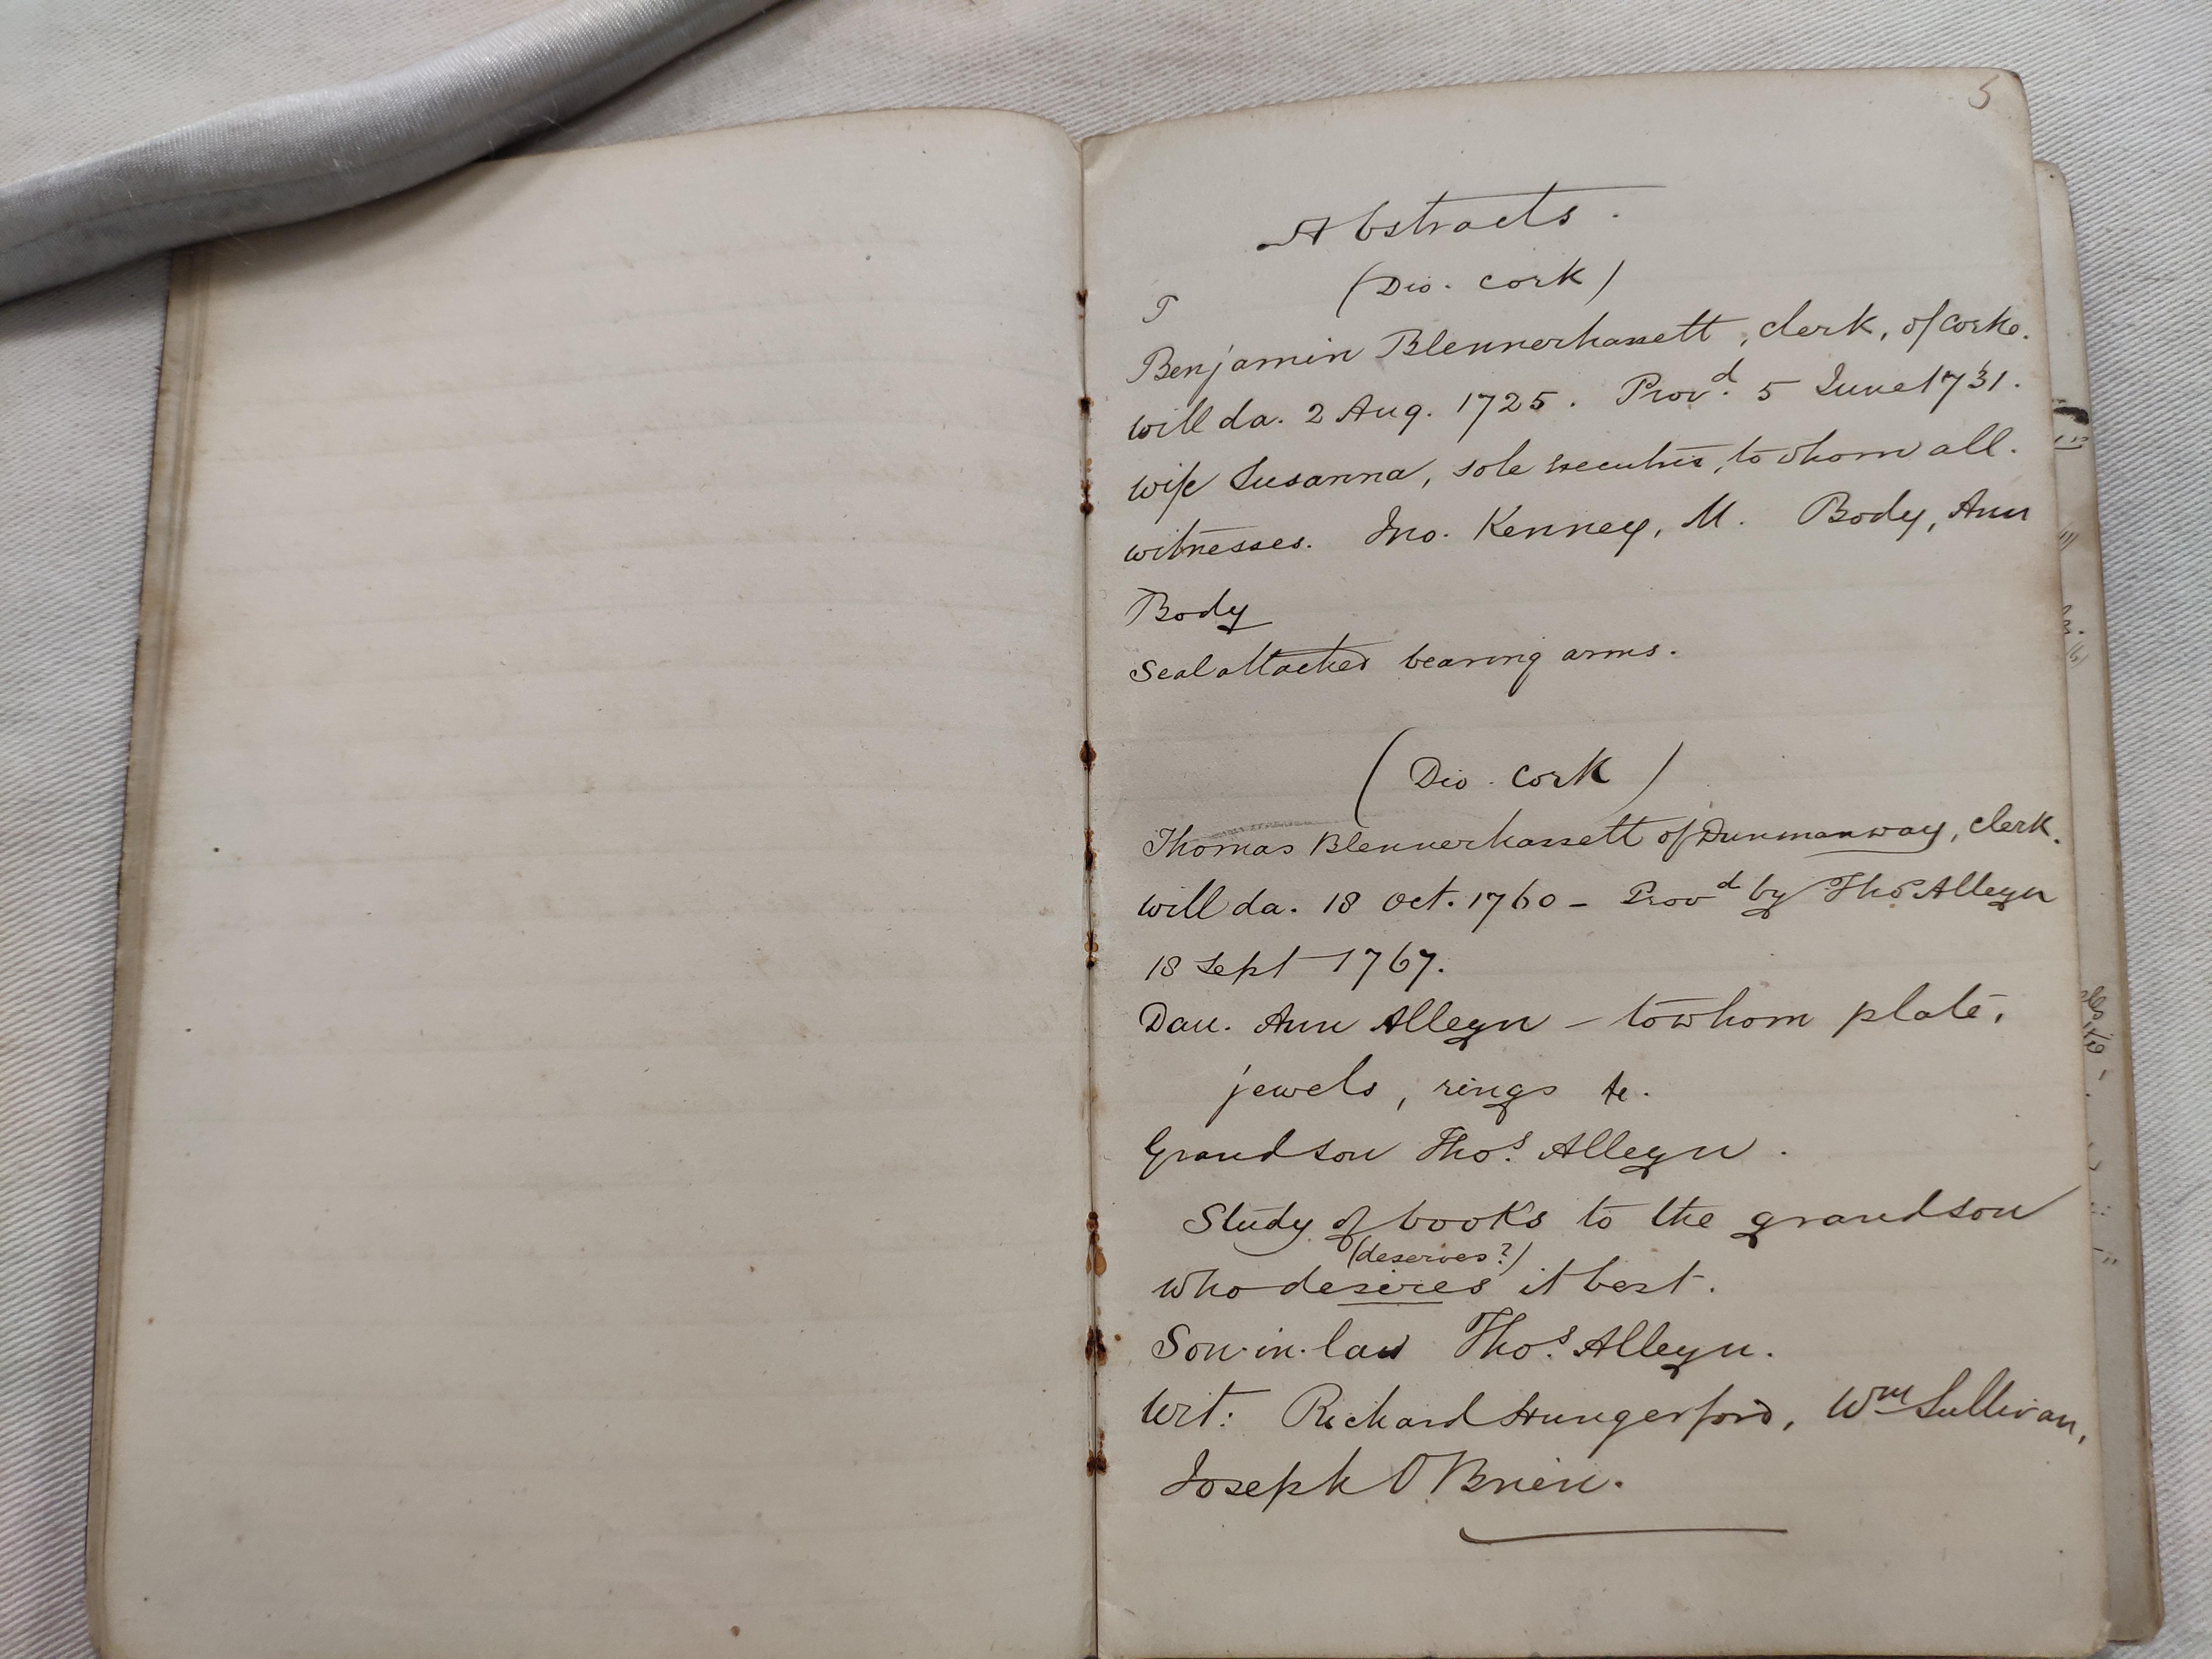 5
Abstracts.
(Dio. Cork)
T
Benjamin Blennerhassett, clerk, of Corke.
will da. 2 Aug. 1725. Provd. 5 June 1731.
wife Susanna, sole executrix, to whom all.
witnesses. Jno. Kenney, M. Body, Ann
Body
Seal attached bearing arms.
(Dio. Cork)
Thomas Blennerhassett of Dunmanway, clerk.
will da. 18 Oct. 1760 - Provd by Thos Alleyn
18 Sept 1767.
Dau. Ann Alleyn - to whom plate,
jewels, rings &c.
Grandson Thos. Alleyn.
Study of books to the grandson
(deserves?)
who desires it best.
Son-in-law Thos. Alleyn.
Wit: Richard Hungerford, Wm Sullivan,
Joseph O'Brien.